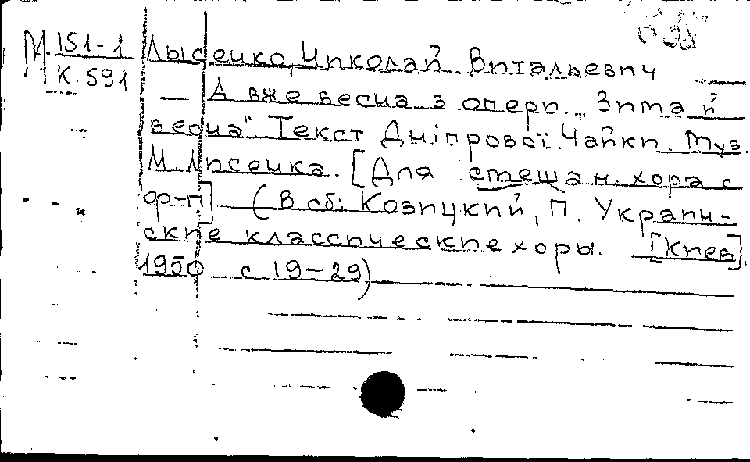 М 151-1
К. 591
Лысенко, Николай Витальевич
А вже весна з опери „Зима й
весна". Текст Дніпрової Чайки. Муз.
М. Лисенка. [Для смешан. хора с
ф-п] (В сб: Козицкий, П. Украин-
ские классические хоры. [Киев],
1950 с 19-29)